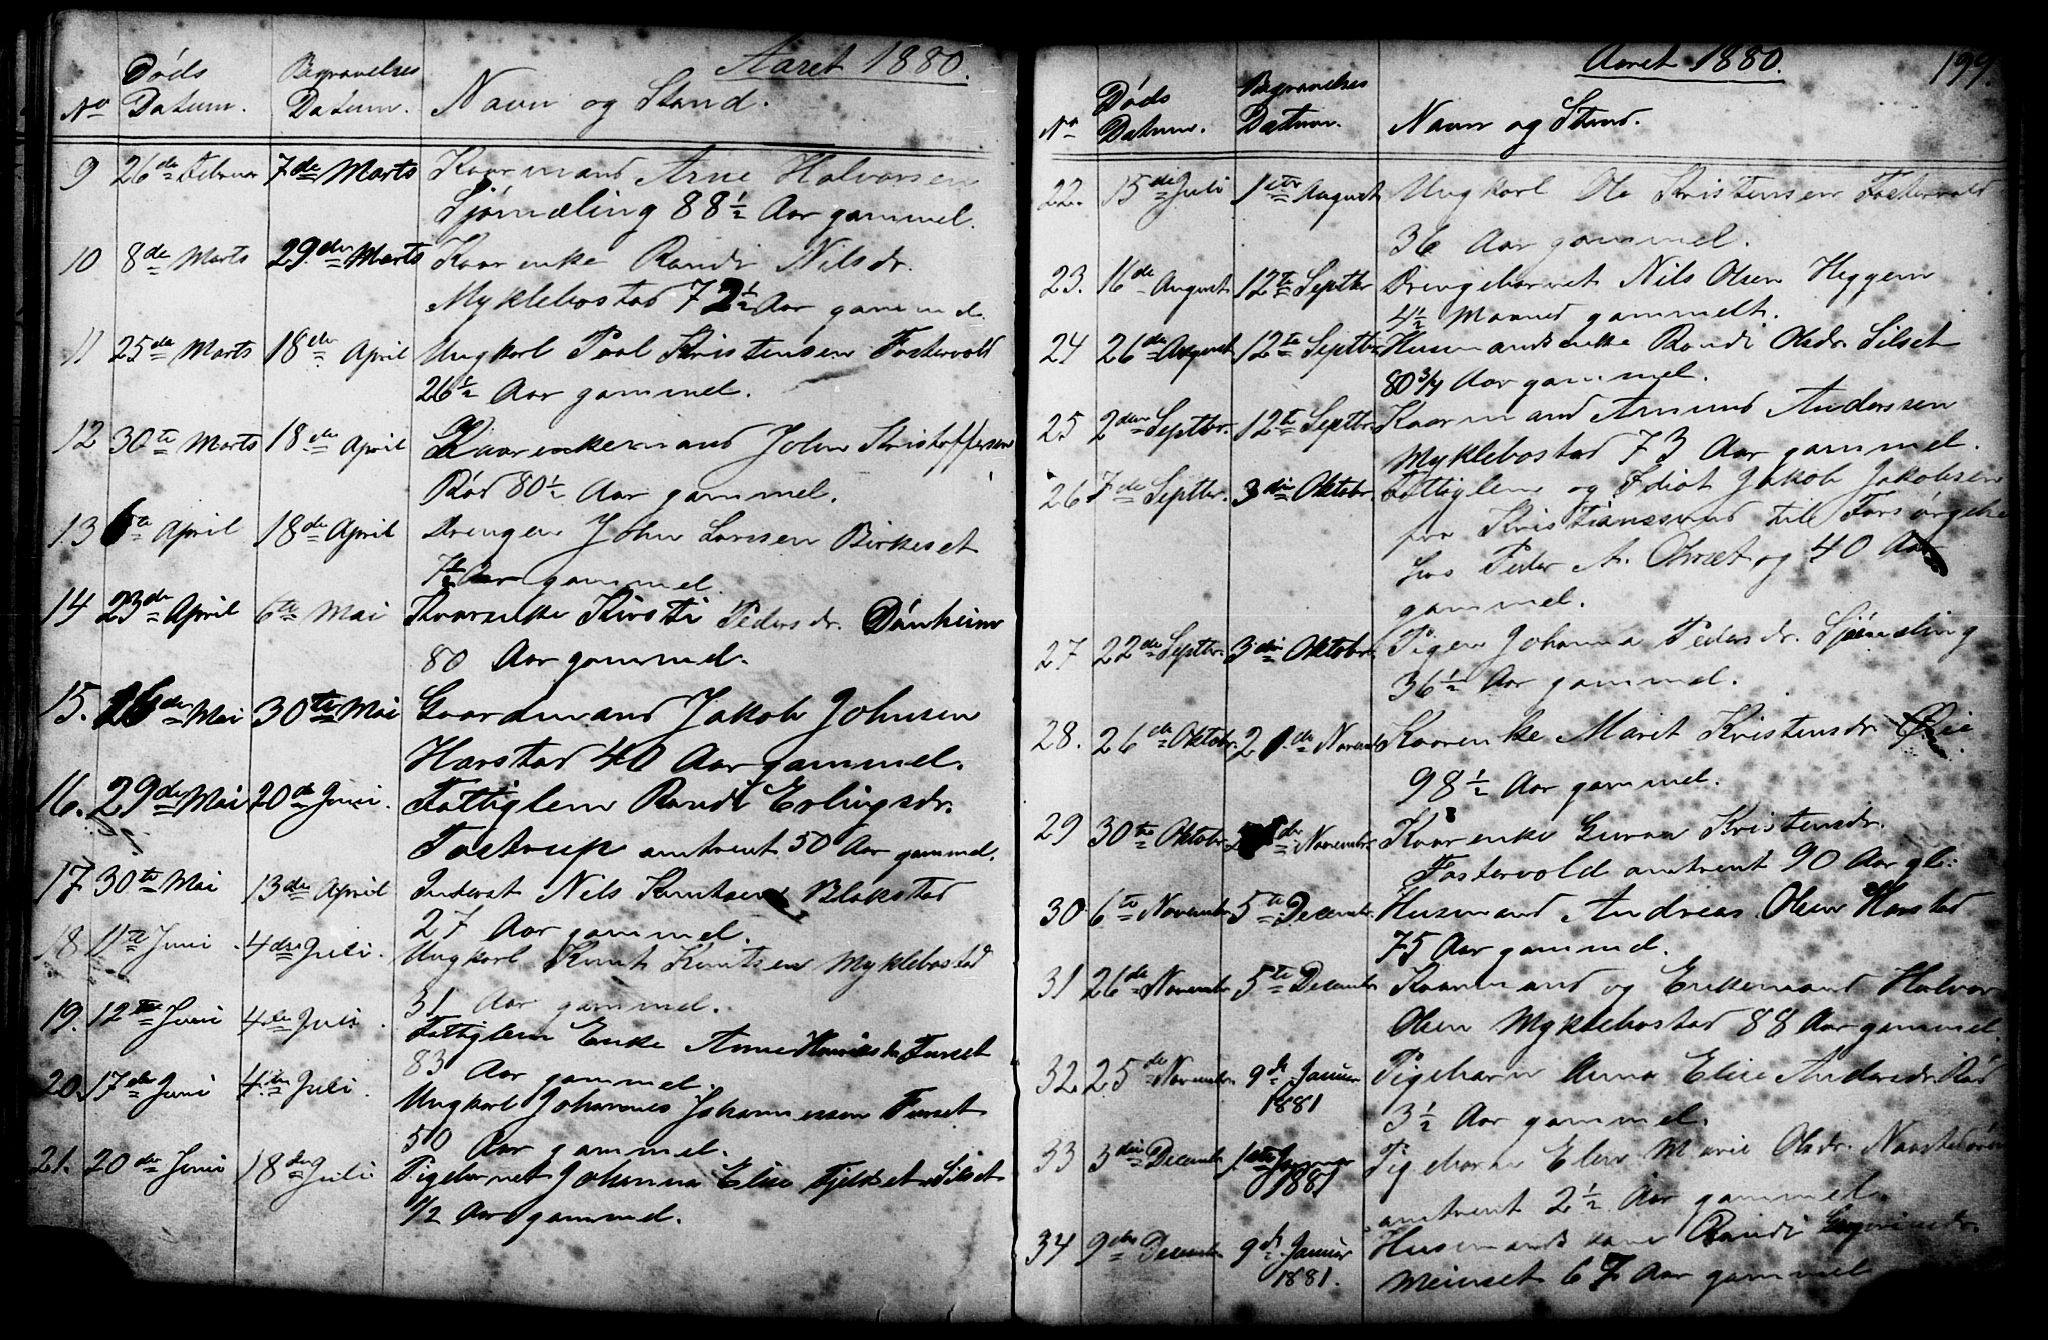 Aaret 1880.
No Døds Datum. Begravelses Datum. Navn og Stand.
9 26de Februar 7de Marts Kaarmand Arne Halvorsen
Sjømæling 88 1/2 Aar gammel.
10 8de Marts 29de Marts Kaarenke Randi Nilsdr.
Myklebostad 72 1/2 Aar gammel.
11 25de Marts 18de April Ungkarl Paal Kristensen Fostervold
26 1/2 Aar gammel.
12 30te Marts 18de April Kaarenkemand John Kristoffersen
Rød 80 1/2 Aar gammel.
13 6te April 18de April Drengen John Larssen Birkeset
Aar gammel.
14 23de April 6te Mai Kaarenke Kirsti Pedersdr. Dønheim
80 Aar gammel.
15. 26de Mai 30te Mai Gaardmand Jakob Johnsen
Harstad 40 Aar gammel.
16. 29de Mai 20de Juni. Fattiglem Randi Erlingsdr.
Tostrup omtrent 50 Aar gammel.
17 30te Mai 13de April Inderst Nils Knutsen Blakstad
27 Aar gammel.
18 11te Juni 4de Juli. Ungkarl Knut Knutsen Myklebostad
31 Aar gammel.
19. 12te Juni 4de Juli. Fattiglem Enke Anne Furset
83 Aar gammel.
20. 17de Juni 4de Juli. Ungkarl Johannes Johannessen Furset
50 Aar gammel.
21. 20de Juni 18de Juli. Pigebarnet Johanna Elise Fjeldset Silset
1/2 Aar gammel.
Aaret 1880. 199.
No Døds Datum. Begravelses Datum. Navn og Stand.
22. 15de Juli 1ste August Ungkarl Ole Kristensen Fostervold
36 Aar gammel.
23. 16de August 12te Septbr Drengebarnet Nils Olsen Heggem
4 1/2 Maaned gammelt.
24 26de August 12te Septbr. Husmandsenke Randi Olsdr. Silset
80 3/4 Aar gammel.
25 2den Septbr. 12te Septbr. Kaarmand Amund Anderssen
Myklebostad 73 Aar gammel.
26 7de Septbr. 3die Oktobr. Fattiglem og Idiot Jakob Jakobsen
fra Kristianssund til Forsørgelse
hos Peder A. Ohrset og 40 Aar
gammel.
27 22de Septbr. 3die Oktobr. Pigen Johanna Pedersdr. Sjømæling
36 1/2 Aar gammel.
28. 26de Oktobr. 21de Novembr Kaarenke Marit Kristensdr. Øie
98 1/2 Aar gammel.
29 30te Oktobr. de Novembr. Kaarenke Guroe Kristensdr.
Fostervold omtrent 90 Aar gl.
30 6te Novembr 5te Decembr. Husmand Andreas Olsen Harstad
75 Aar gammel.
31 26de Novembr 5te Decembr Kaarmand og Enkemand Halvor
Olsen Myklebostad 88 Aar gammel
32. 25de Novembr 9de Januar 1881 Pigebarn Anna Elise Andersdr. Rød
3 1/2 Aar gammel.
33 3die Decembr 1ste Januar 1881 Pigebarn Elen Marie Olsdr.
omtrent 2 1/2 Aar gammel.
34 9de Decembr 9de Januar 1881. Husmandskone Randi
Meinset 67 Aar gammel